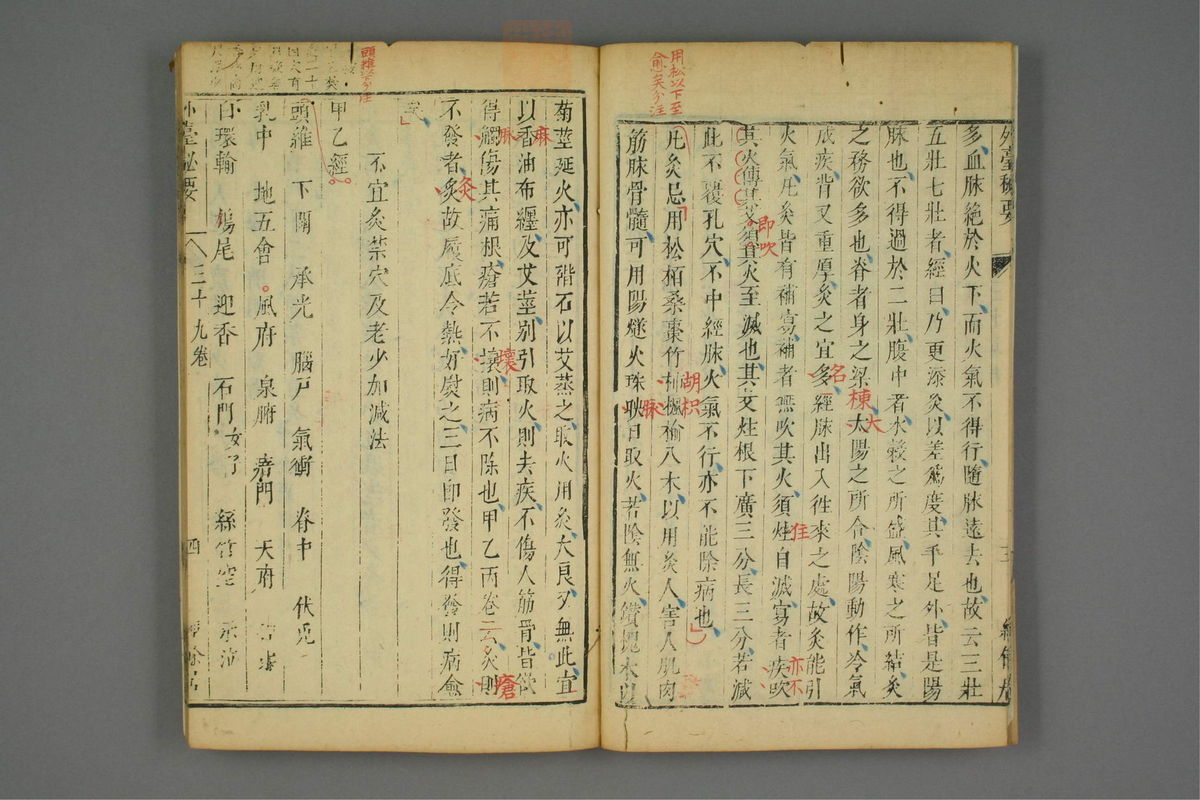 外臺秘要
多血脉絶於火下而火氣不得行隨脉遠去也故云三壯
五壯七壯者經曰乃更添灸以差爲度其手足外皆是陽
脉也不得過於二壯腹中者水穀之所盛風寒之所結灸
之務欲多也脊者身之梁棟太陽之所合陰陽動作冷氣
大
成疾背又重厚灸之宜多經脉出入徃來之處故灸能引
名
火氣凡灸皆有補寫補者無吹其火須炷自滅寫者疾吹
住
亦不
其火傳其艾須其火至滅也其艾炷根下廣三分長三分若減
即吹
此不覆孔穴不中經脉火氣不行亦不能除病也
凡灸忌用松栢桑棗竹楡八木以用灸人害人肌肉
胡枳
筋脉骨髓可用陽燧火珠映日取火若陰無火鑽槐木以
脉
用松以下至
愈矣分注
菊莖延火亦可磾石以艾蒸之取火用灸大良又無此宜
以香油布纏及艾莖别引取火則去疾不傷人筋骨皆欲
麻
得觸傷其痛根瘡若不壞則病不除也甲乙丙卷云灸則
脉
壞
瘡
不發者灸故履底令熱好熨之三日即發也得發則病愈
灸
矣
不宜灸禁穴及老少加減法
甲乙經
頭維分注
頭維 下關 承光 腦戸 氣衝 脊中 伏兎
乳中 地五會 風府 泉腋 瘖門 天府
白環輸 鳩尾 迎香 石門女子 絲竹空 承泣
外臺秘要 三十九卷 四